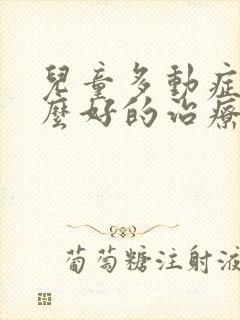 兒童多動症
麼好的治療
葡萄糖注射液